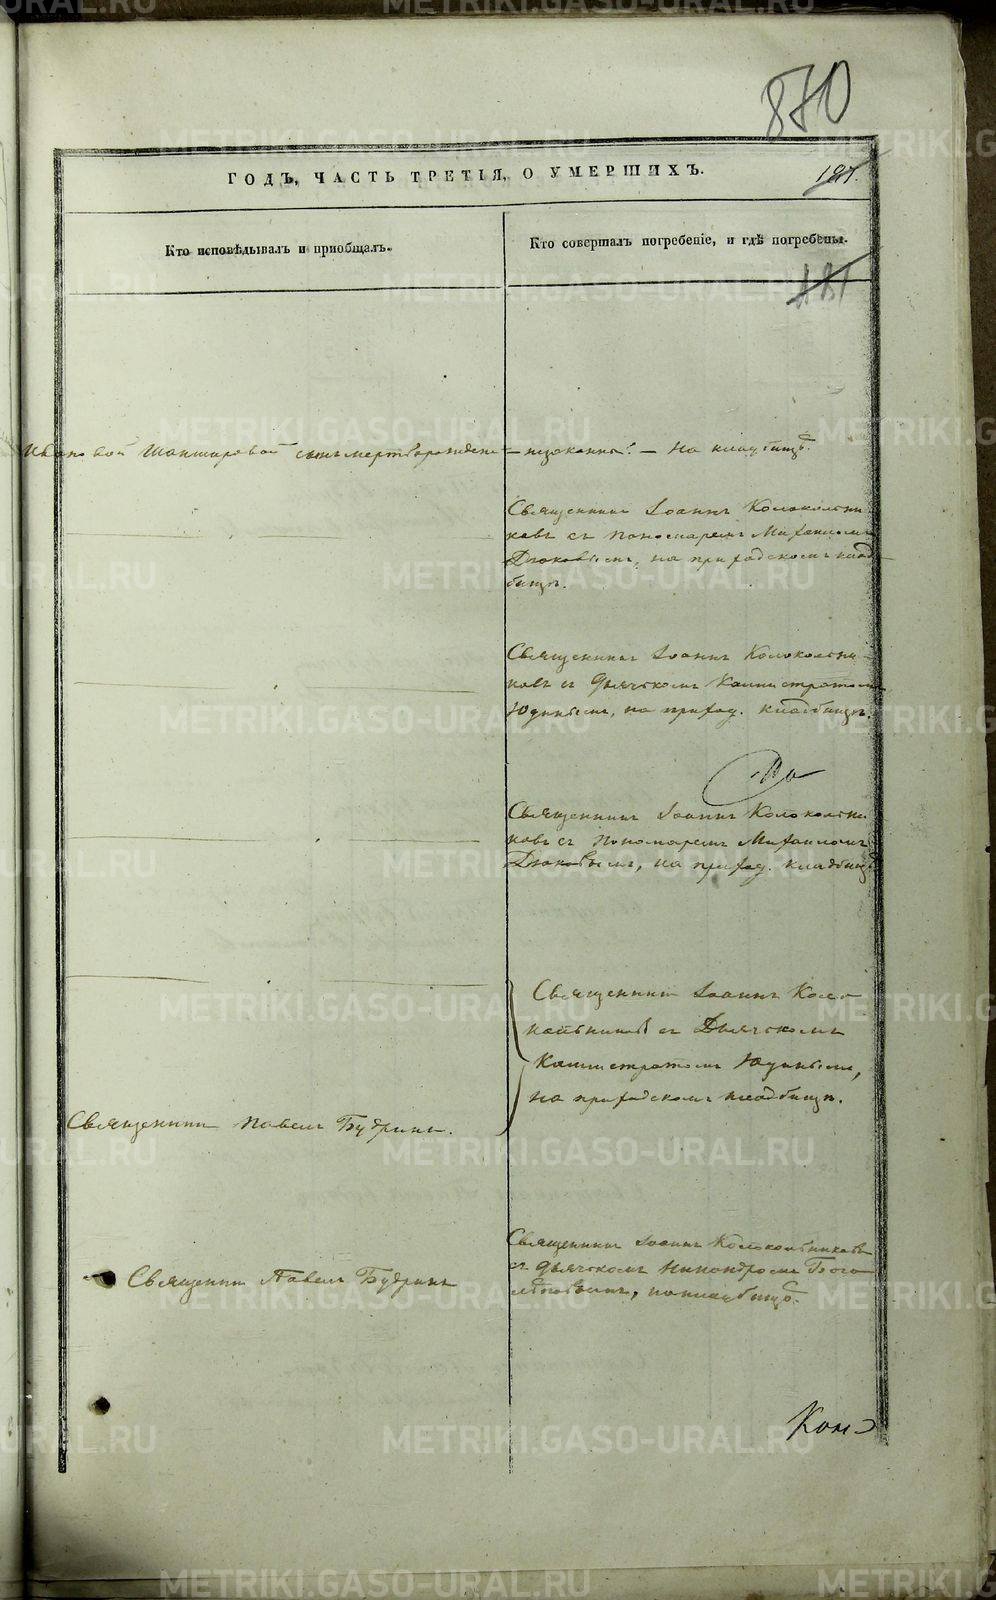 870
ГОДЪ, ЧАСТЬ ТРЕТІЯ, О УМЕРШИХЪ.
181.
Кто исповѣдывалъ и приобщалъ.
Кто совершалъ погребеніе, и гдѣ погребены.
181
Ивановой сынъ мертворожден — незаконный. — На кладбищѣ.
Священникъ Іоаннъ Колокольни
ковъ съ Пономаремъ Михаиломъ
Дьяковымъ, на приходскомъ клад
бищѣ.
Священникъ Іоаннъ Колокольни
ковъ съ Дьячкомъ Каллистратомъ
Юдинымъ, на приход. кладбищѣ.
По
Священникъ Іоаннъ Колокольни
ковъ съ Пономаремъ Михаиломъ
Дьяковымъ, на приход. кладбищѣ
Священникъ Іоаннъ Коло
кольниковъ съ Дьячкомъ
Каллистратомъ Юдинымъ,
на приходскомъ кладбищѣ.
Священникъ Павелъ Будринъ.
Священникъ Іоаннъ Колокольниковъ
съ Дьячкомъ Никандромъ Бого
лѣповымъ, на кладбищѣ.
Священникъ Павелъ Будринъ
METRIKI.GASO-URAL.RU